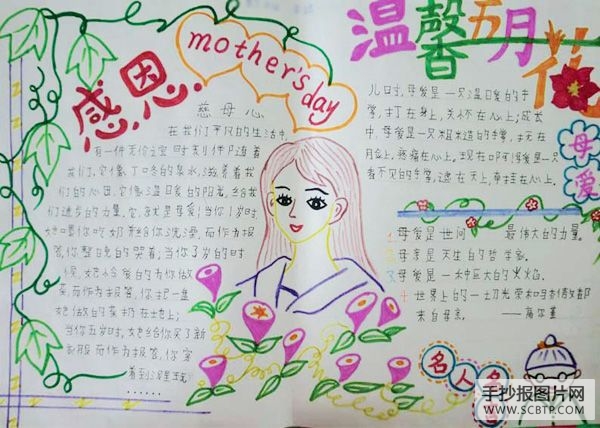 感恩
mother's day
慈母心
在我们平凡的生活中,
有一件无价之宝时刻伴随着
我们,它像丁冬的泉水,滋养着我
们的心田。它像温暖的阳光,给我
们进步的力量。它就是母爱!当你1岁时
她喂你吃奶并给你洗澡,而作为报
答,你整晚的哭着;当你了岁的时
候,她怜爱的为你做
菜,而作为报答,你把一盘
她做的菜扔在地上;
当你五岁时,她给你买了新
衣服而作为报答,你穿
着到泥里玩
……
温馨五月花
儿时,母爱是一只温暖的手
掌,打在身上,关怀在心上;成长
中,母爱是一只粗糙的手掌,
疼痛在心上。现在母爱是一只
看不见的手掌,遮在天上,牵挂在心上。
母爱
1.母爱是世间最伟大的力量。
2.母亲是天生的哲学家。
3.母爱是一种巨大的火焰。
4.世界上的一切光荣和骄傲都
来自母亲。——高尔基
名人名
手抄报图片网
WWW.SCBTP.COM